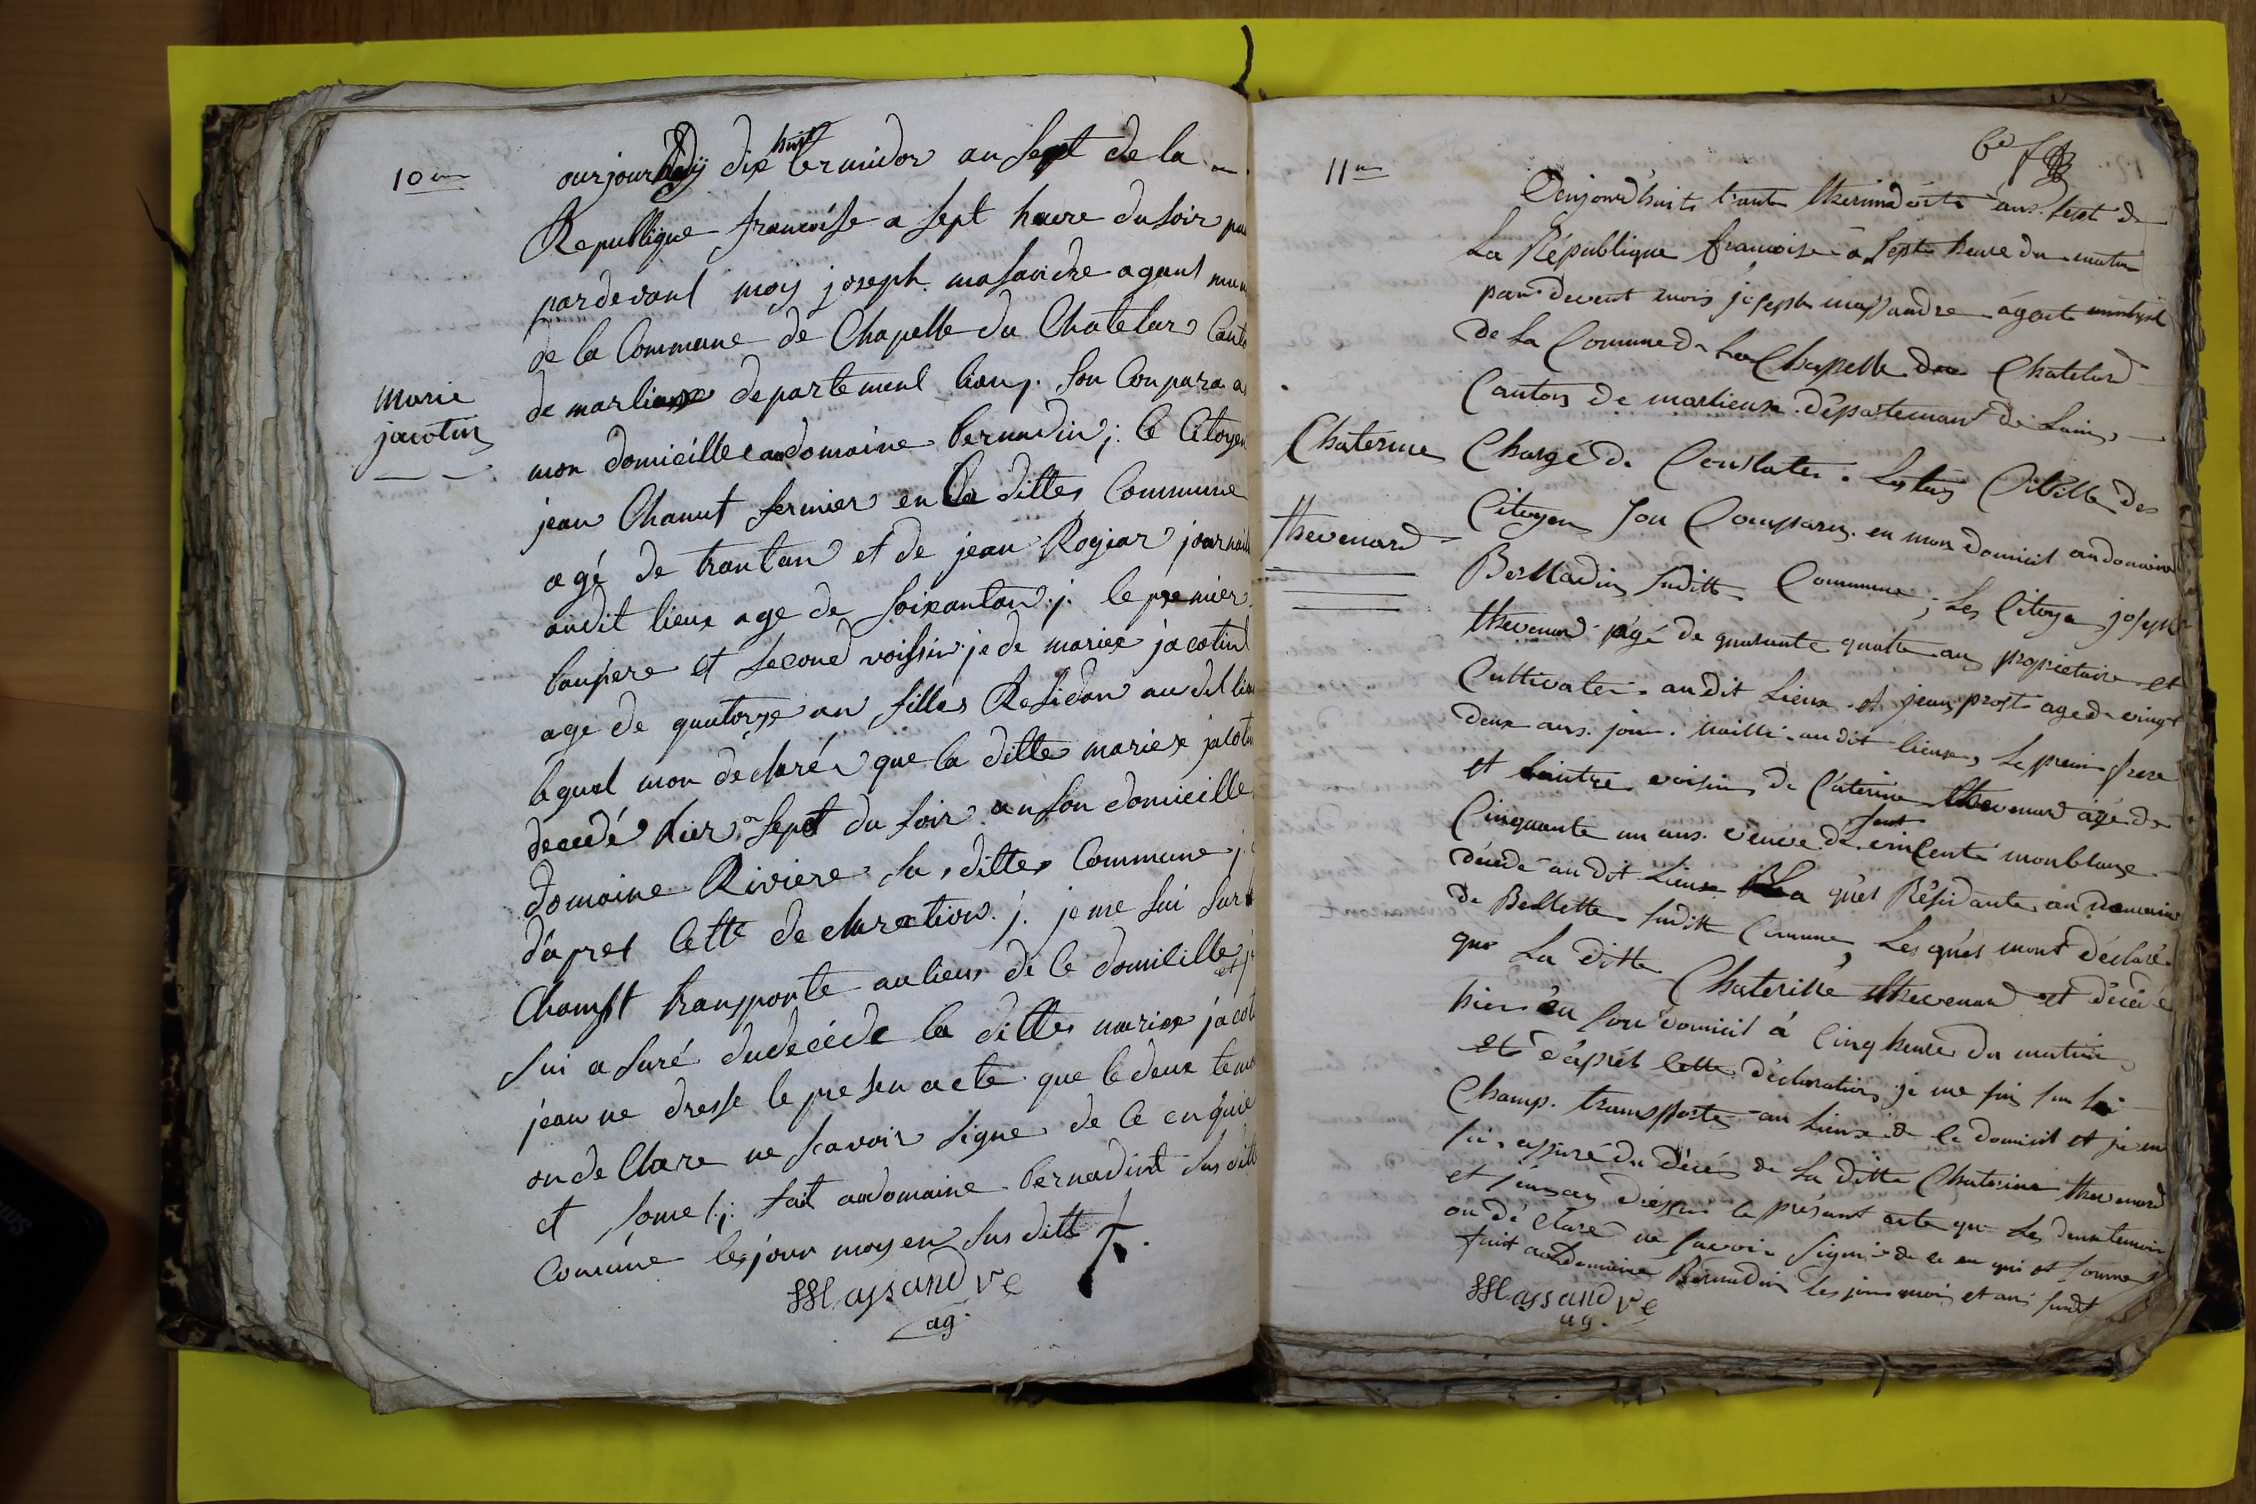 10me
ourjourhdij dix huit termidor an sept de la
Republique francoisse a sept heure du soir
pardevant moy joseph masandre agant
de la Commune de Chapelle du Chatelar
de marlieux departement liany. son Conpara a
Marie
jacotin
mon domicille audomaine bernadin j. le Citoyen
jean Chanut fermier en la dittes Commune
agé de trantan et de jean Rogiar
audit lieux age de soixantan j. le premier
baupere et second voissin je de mariee jacotint
age de quatorze an filles Residan au dit
lequel mon declaré que la ditte mariee
decedé hier a sept du soir an son domicille
domaine Riviere sa dittes Commune j.
d'apret Cette declaration j. je me sui sur
Champt transporte au lieux de ce domicille et j
sui a suré du decéde la dittes mariee
jean ne dresse le presen acte que le deux
on de Clare ne scavoir signe de ce en quie
et some j. fait audomaine bernadint sus ditte
Comune les jour moy en sus ditt
Massandre
ag.
11me
6e f
D'aujourd'huit trante thermidorte ans sept de
La République francoise à Sept heure du matin
par devent mois joseph massandre agant
de La Commune de La Chapelle du Chatelard
Canton de marlieux département de Lain,
Chaterine
thevenard
Chargé de Constater Létas Civille des
Citoyen son Comparu en mon domicil au domaine
Bernadin suditte Commune, Les Citoyen joseph
thevenard agé de quarante quatre ans propriétaire et
Cultivater audit Lieux et jean prost age de vingt
deux ans. jour naillié au dit lieux, Le premier frere
et lautre voisin de Caterine thevenard agé de
Cinquante un ans. veuve de feut vincent monblanc
décedé audit Lieux qués Résidante au domaine
de Bellette suditte Commune, Les qués mont déclaré
que La ditte Chaterine thevenard et décedé
hier en son domicil à Cinq heure du matin
et d'après Cette déclaration, je me suis sur le
Champ. transporte au Lieux de ce domicil et je me
sui assuré du décés de La ditte Chaterine thevenard
et j'enses dressé le présant acte que Les deux temoin
on dé Claré ne savoir signié de ce en qui et somme
fait au domaine Bernadin les jour mois et ans sudit
Massandre
ag.